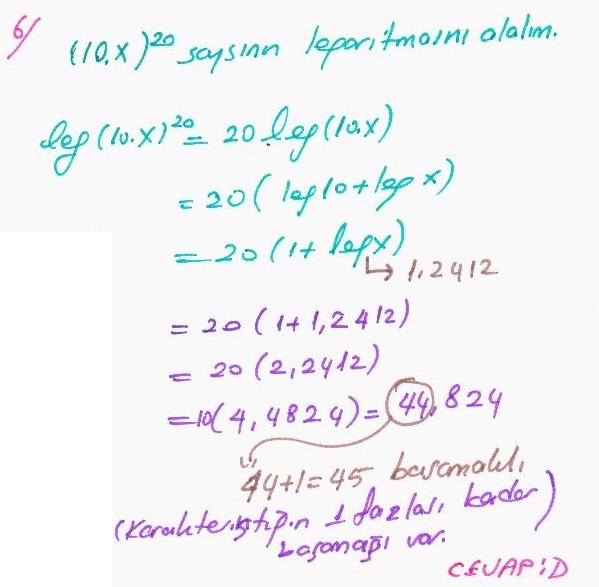 6/
(10.x)²⁰ sayısının logaritmasını alalım.
log(10.x)²⁰ = 20 log(10.x)
= 20(log10+log x)
= 20(1+ logx)
↳ 1,2412
= 20(1+1,2412)
= 20(2,2412)
=10(4,4824)= 44,824
44+1=45 basamaklı.
(Karakteristiğin 1 fazlası kadar)
basamağı var.
CEVAP:D